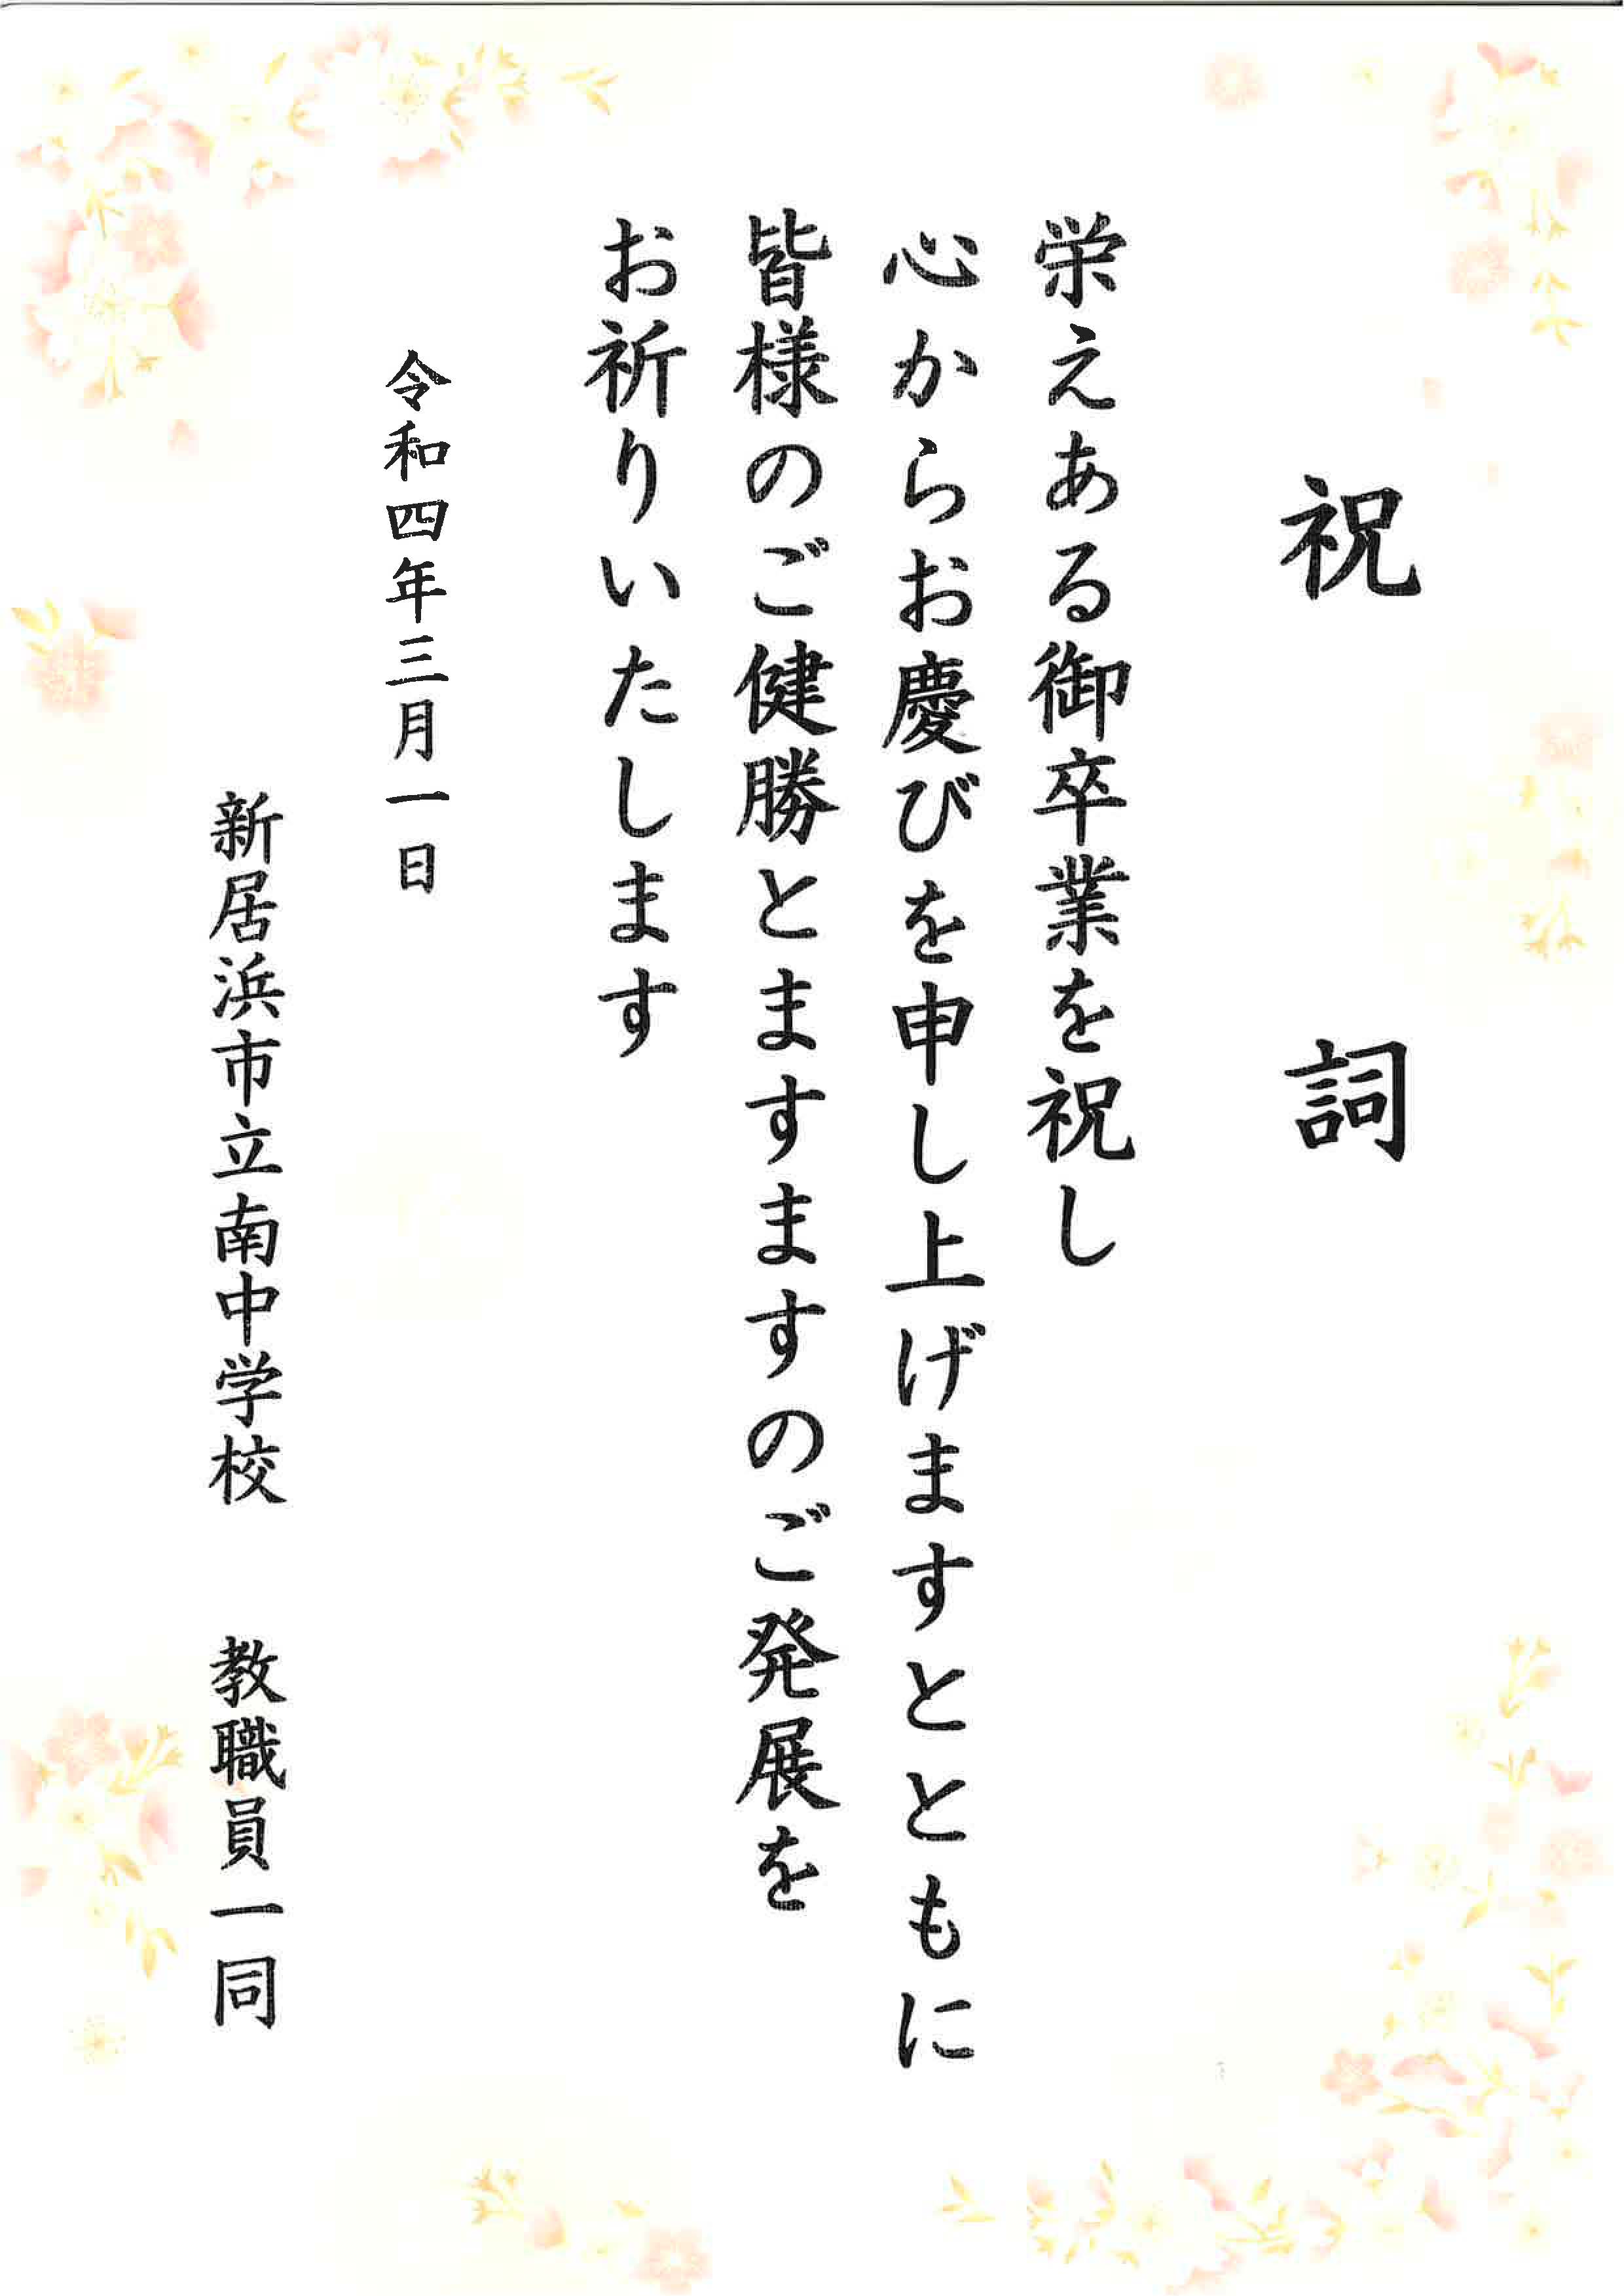 祝　詞
栄えある御卒業を祝し
心からお慶びを申し上げますとともに
皆様のご健勝とますますのご発展を
お祈りいたします
令和四年三月一日
新居浜市立南中学校　教職員一同